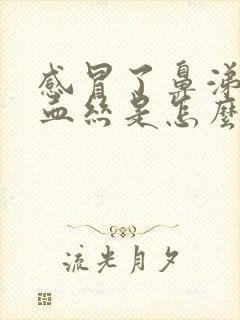 感冒了鼻涕
血丝是怎麽
流光月夕